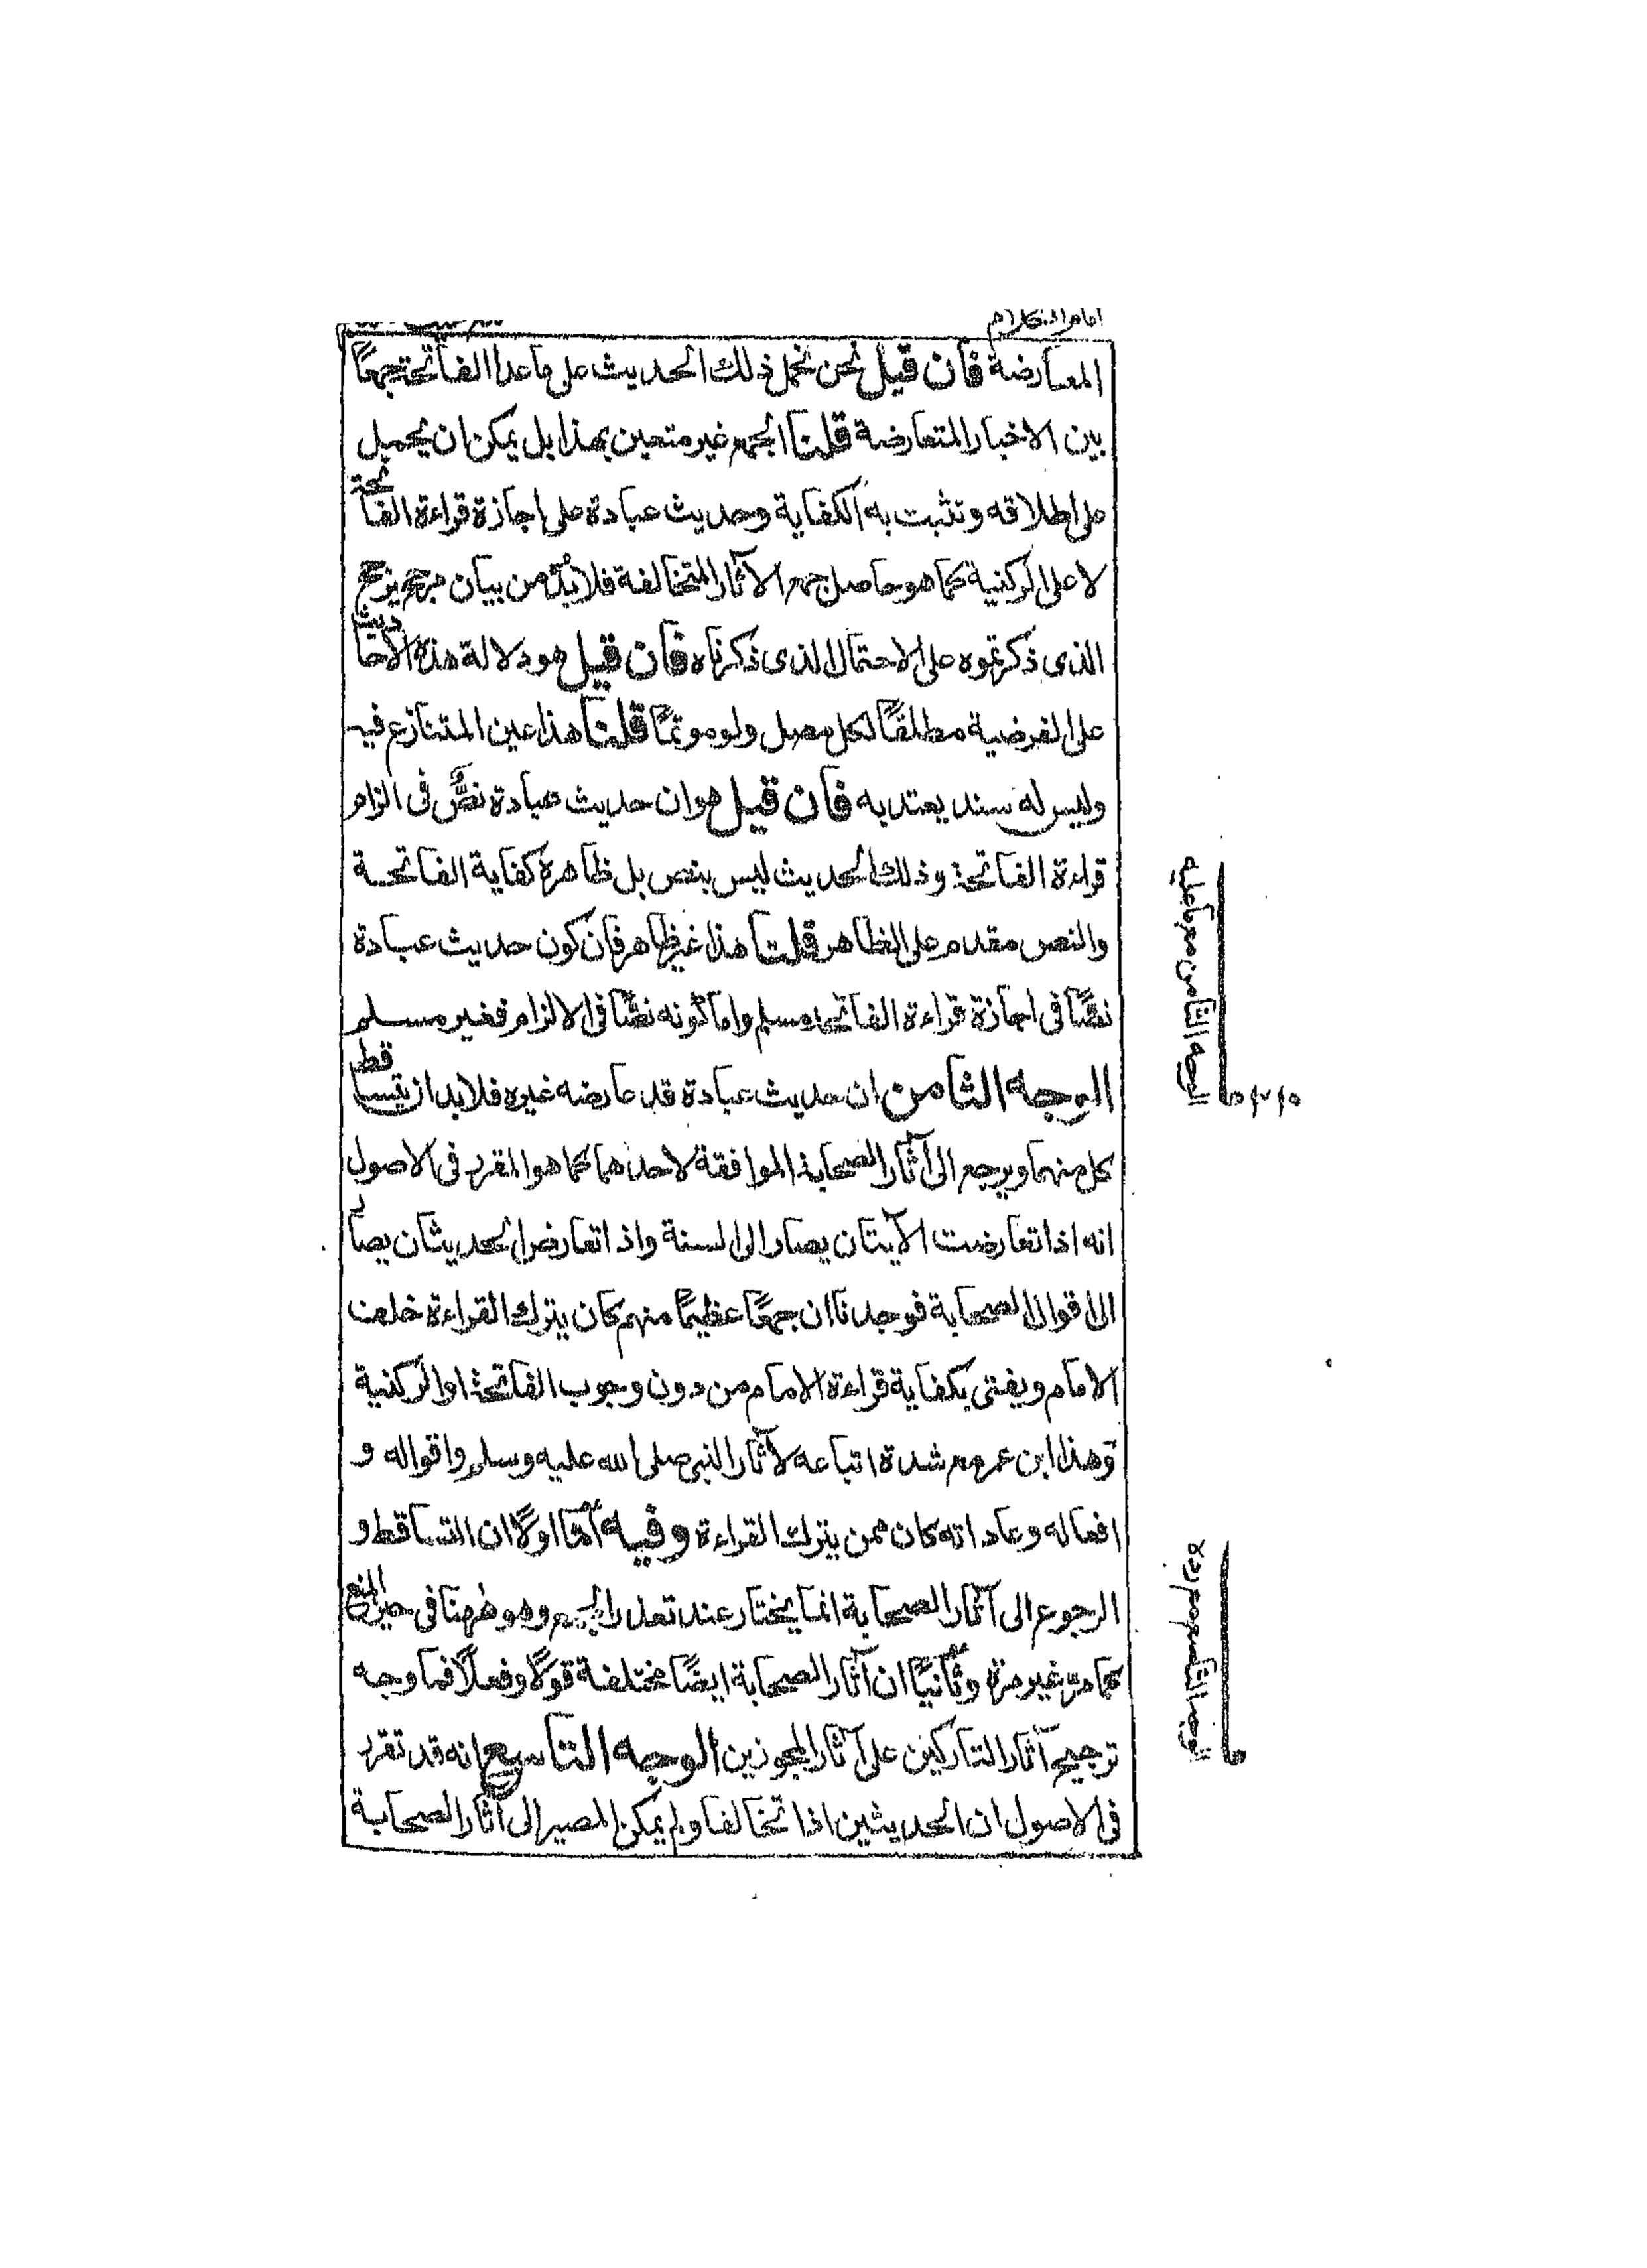 امام الكلام
المعارضة فان قيل نحن نحمل ذلك الحديث على ما عدا الفاتحة جمعًا
بين الاخبار المتعارضة قلنا الجمع غير متعين بهذا بل يمكن ان يحمل
على اطلاقه وتثبت به الكفاية وحديث عبادة على اجازة قراءة الفاتحة
لا على الركنية كما هو حاصل جمع الآثار المتخالفة فلا بُدّ من بيان مرجح يرجح
الذى ذكرتموه على الاحتمال الذى ذكرناه فان قيل هو دلالة هذه الاحاديث
على الفرضية مطلقًا لكل مصل ولو موتمًا قلنا هذا عين المتنازع فيه
وليس له سند يعتد به فان قيل هو ان حديث عبادة نصٌّ فى الزام
قراءة الفاتحة وذلك الحديث ليس بنص بل ظاهره كفاية الفاتحة
والنص مقدم على الظاهر قلنا هذا غير ظاهر فان كون حديث عبادة
نصًّا فى اجازة قراءة الفاتحة مسلم واما كونه نصًّا فى الالزام فغير مسلم
الوجه الثامن ان حديث عبادة قد عارضه غيره فلا بد ان يتساقط
كل منهما ويرجع الى آثار الصحابة الموافقة لاحدهما كما هو المقرر فى الاصول
انه اذا تعارضت الآيتان يصار الى السنة واذا تعارض الحديثان يصار
الى اقوال الصحابة فوجدنا ان جمعًا عظيمًا منهم كان يترك القراءة خلف
الامام ويفتى بكفاية قراءة الامام من دون وجوب الفاتحة او الركنية
وهذا ابن عمر مع شدة اتباعه لآثار النبى صلى الله عليه وسلم واقواله و
افعاله وعاداته كان ممن يترك القراءة وفيه امّا اولًا ان التساقط و
الرجوع الى آثار الصحابة انما يختار عند تعذر الجمع وهو ههنا فى حيز المنع
كما مرّ غير مرة وثانيًا ان آثار الصحابة ايضًا مختلفة قولًا وفعلًا فما وجه
ترجيح آثار التاركين على آثار المجوزين الوجه التاسع انه قد تقرر
فى الاصول ان الحديثين اذا تخالفا ولم يمكن المصير الى آثار الصحابة
الوجه الثامن مع ما عليه
الوجه التاسع مع رده